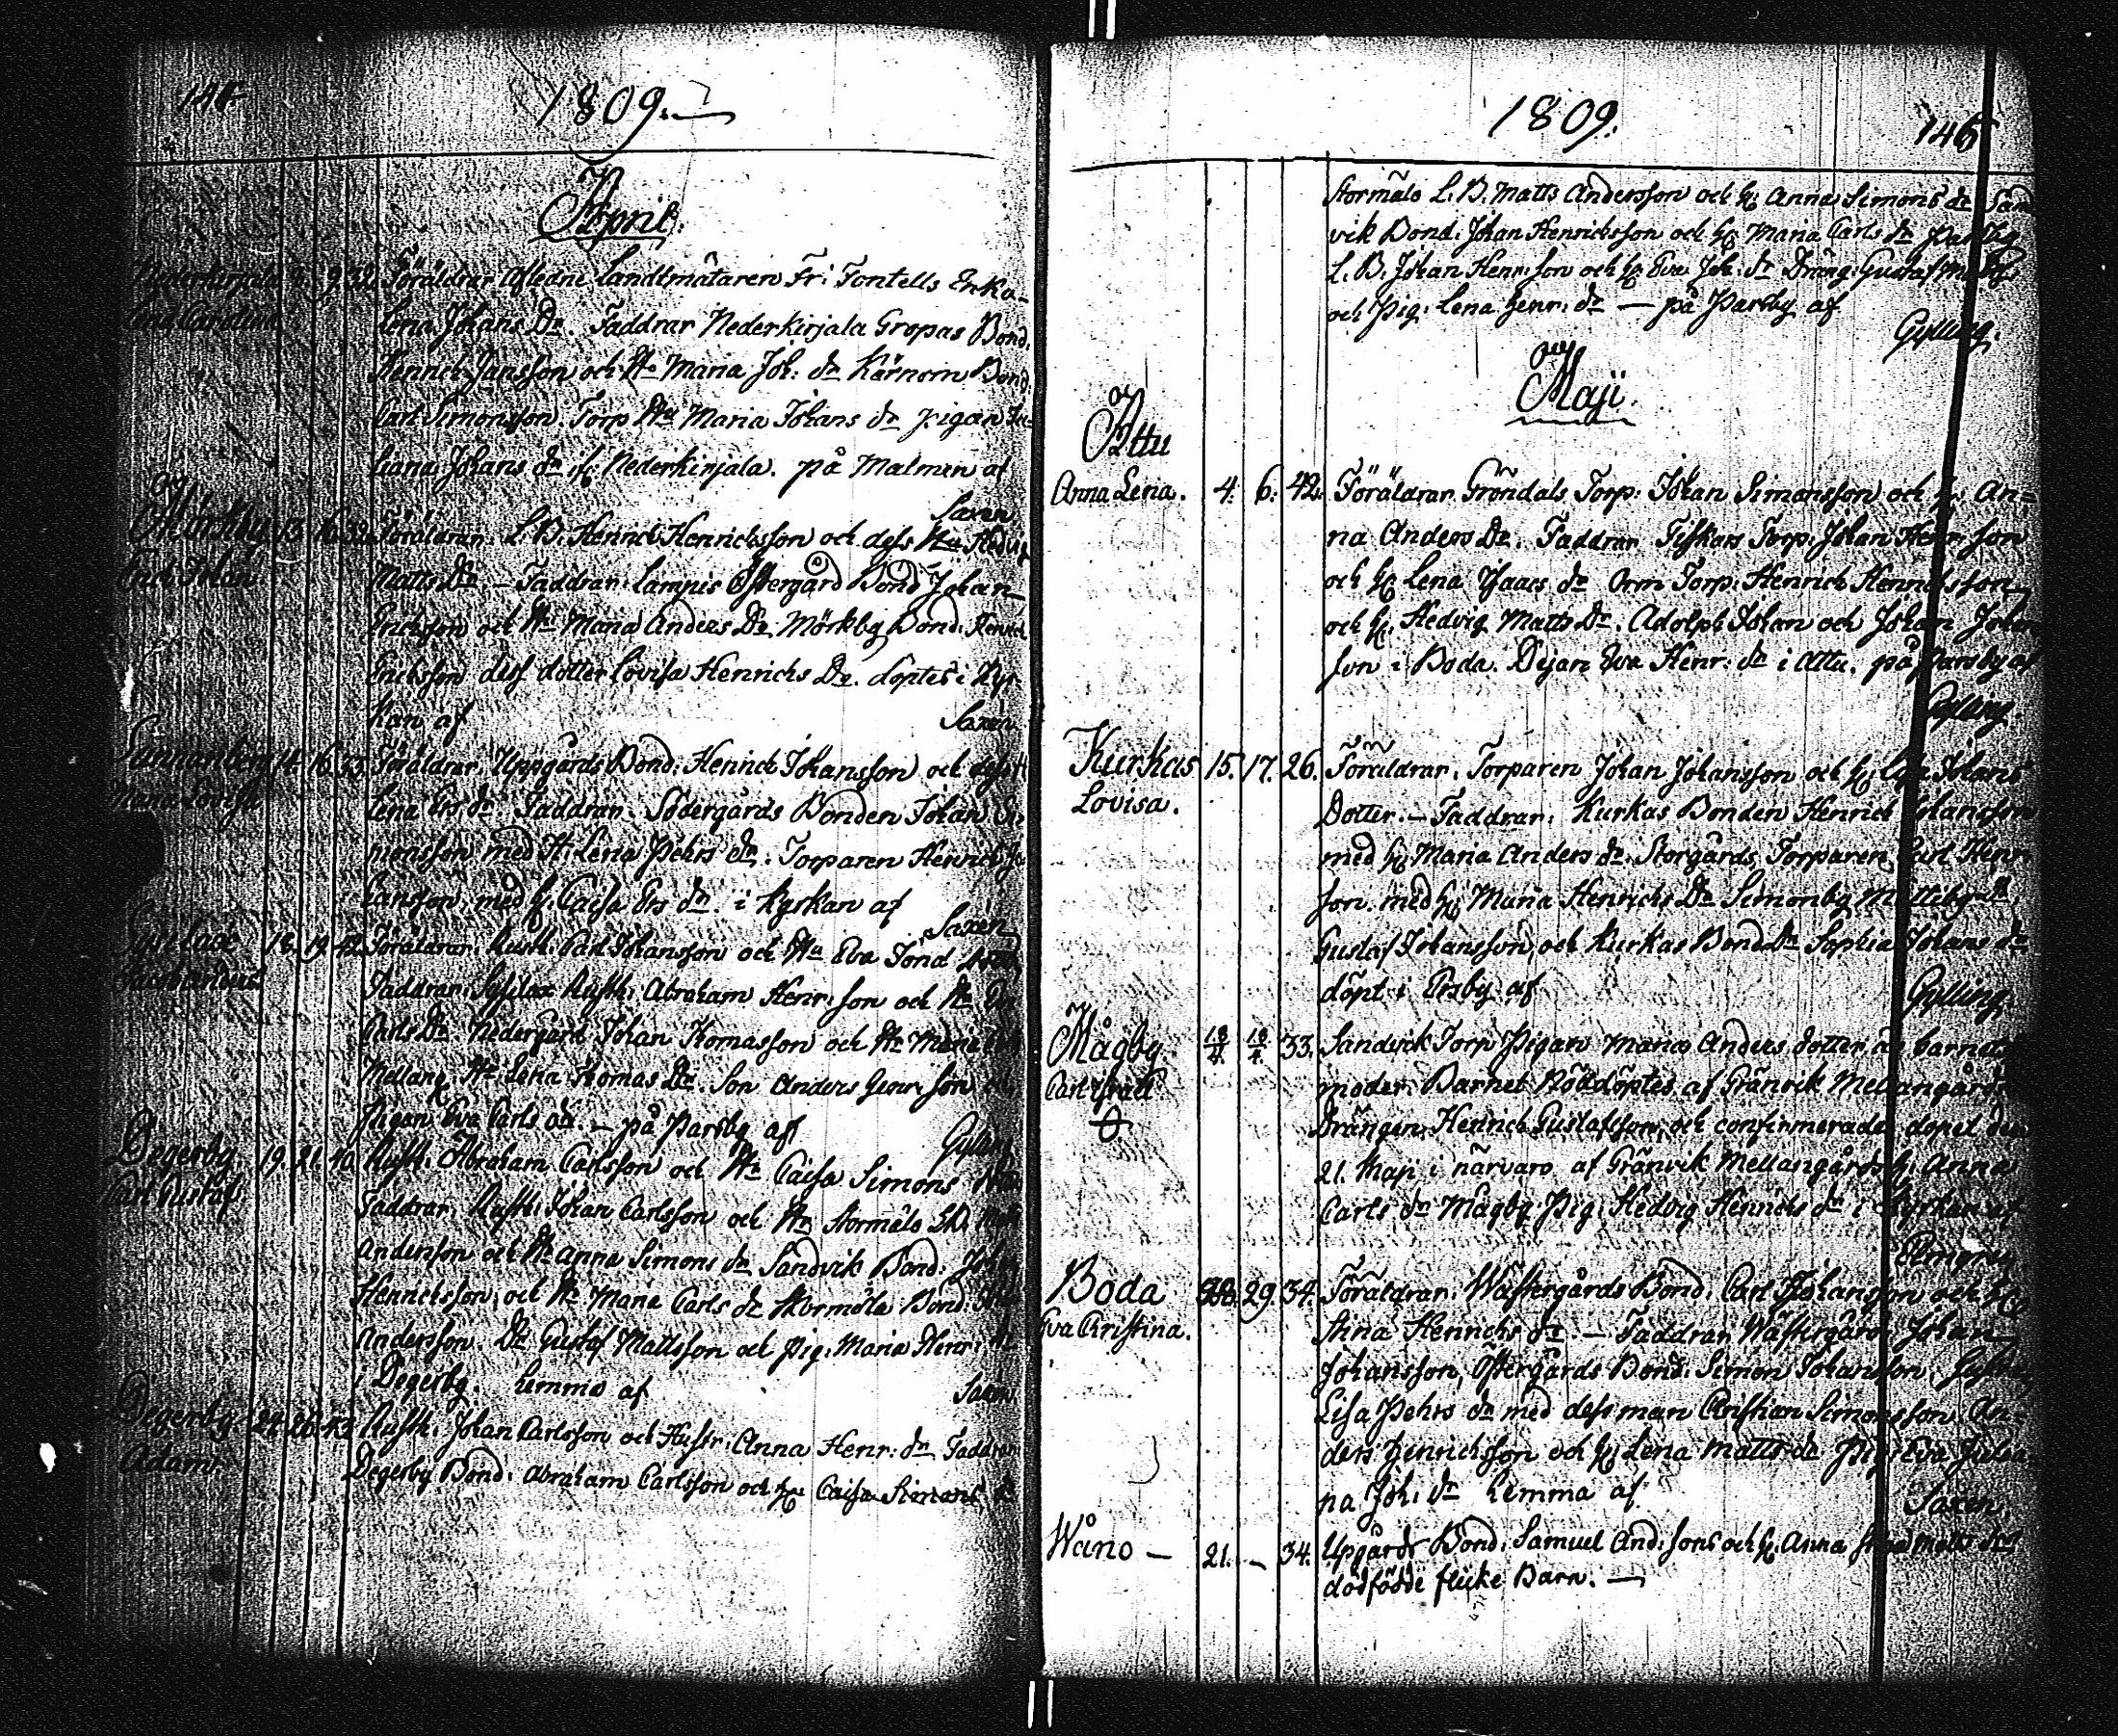 144
1809.
April.
Nederkirjala 9. 32. Föräldrar Afledne Landtmätaren Fr: Fontells Enka
Carolina Lena Johans Dr. Faddrar Nederkirjala Gropas Bond.
Henrich Jansson och Ha Maria Joh: dr Kärnom Bond
Carl Simonsson. Torp Ha Maria Johans dr pigan
liana Johans dr if. Nederkirjala. på Malmen af
Saxen
Mörkby 13. 16. 32. Föräldrar. L. B. Henrich Henrichsson och dess Ha Hedvig
Erich Johan Matts Dr. Faddrar Lampis Östergård Bond Johan
Erichsson och Ha Maria Anders Dr. Mörkby Bond: Henrich
Erichsson dess dotter Lovisa Henrichs Dr. döptes i Kyr-
kan af Saxen
14. 16. 33. Föräldrar. Uppgårds Bond: Henrich Johansson och dess
Maria Lovisa Lena Ers dr Faddrar. Södergårds Bonden Johan Si-
monsson med H. Lena Pehrs dr. Torparen Henrich
Carlsson, med H. Caisa Ers dr. i Kyrkan af
Saxen
19. 42. Föräldrar. Rusth. Carl Johansson och Ha Eva
Faddrar. Rusth. Abraham Henr: son och Ha
Carls Dr. Nedergård Johan Thomasson och Ha Maria
Mellang. Ha Lena Thomas Dr. Son Anders Henr: son
Pigan Eva Carls dr. — på Parsby af
Degerby. 19. 21. 40. Rusth. Abraham Carlsson och Ha Caisa Simons
Carl Gustaf Faddrar. Rusth. Johan Carlsson och Ha Stormälo
Andersson och Ha Anna Simons dr Sandvik Bond: Joh
Henrichsson, och Ha Maria Carls dr Stormälo Bond.
Andersson. Dr Gustaf Mattsson och Pig: Maria Henr:
i Degerby. hemma af Saxen
Degerby. 24. 26. 43. Rusth. Johan Carlsson och Hustr: Anna Henr: dr Faddrar
Adam. Degerby Bond: Abraham Carlsson och H. Caisa Simons
1809.
145
Stormälo L. B. Matts Andersson och H. Anna Simons dr Sand
vik Bond. Johan Henrichsson och H. Maria Carls dr Parsby
L. B. Johan Henr: son och H. Eva Joh: dr Dräng: Gustaf
och Pig: Lena Henr: dr — på Parsby af
Gylling.
Maji.
Attu
Anna Lena. 4. 6. 42. Föräldrar Gröndals Torp: Johan Simonsson och H. An=
na Anders Dr. Faddrar Fiskars Torp. Johan Henr: son
och H. Lena Isaacs dr Orm Torp: Henrich Henrichsson
och H. Hedvig Matts Dr. Adolph Johan och Johan Johan
son i Boda. Dejan Eva Henr: dr i Attu. på Parsby af
Gylling.
Kurkas 15. 17. 26. Föräldrar. Torparen Johan Johansson och H. Johans
Lovisa. Dotter. — Faddrar: Kurkas Bonden Henrich Johansson
med H. Maria Anders dr. Storgårds Torparen Carl Henr
son. med H. Maria Henrichs Dr Simonby
Gustaf Johansson, och Kurkas Bond. Dr Sophia Johans dr
döpt i Ersby af Gylling
Mågby 33. Sandvik Torp Pigan Maria Anders dotter är barnets
Carl moder. Barnet Nöddöptes af Gränvik Mellangårds
Drängen Henrich Gustafsson, och confirmerades dopet den
21. Maji i närvaro af Gränvik Mellangårds H. Anna
Carls dr Mågby Pig: Hedvig Henrichs dr i Kyrkan af
Boda 29. 34. Föräldrar. Wästergårds Bond: Carl Johansson och H.
Eva Christina. Stina Henrichs dr. — Faddrar Wästergård Johan
Johansson, Östergårds Bond: Simon Johansson,
Lisa Pehrs dr med dess man Christian Simonsson An-
ders Henrichsson och H. Lena Matts dr Pig: Eva Julia
na Joh: dr hemma af Saxen.
Wåno — 21. — 34. Upgårds Bond: Samuel And: sons och H. Anna Matts drs
dödfödde flicke Barn. —